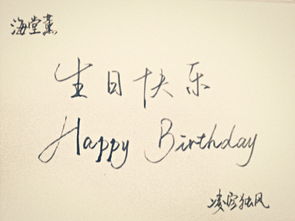 海堂薰
生日快乐
Happy Birthday
凌容独风